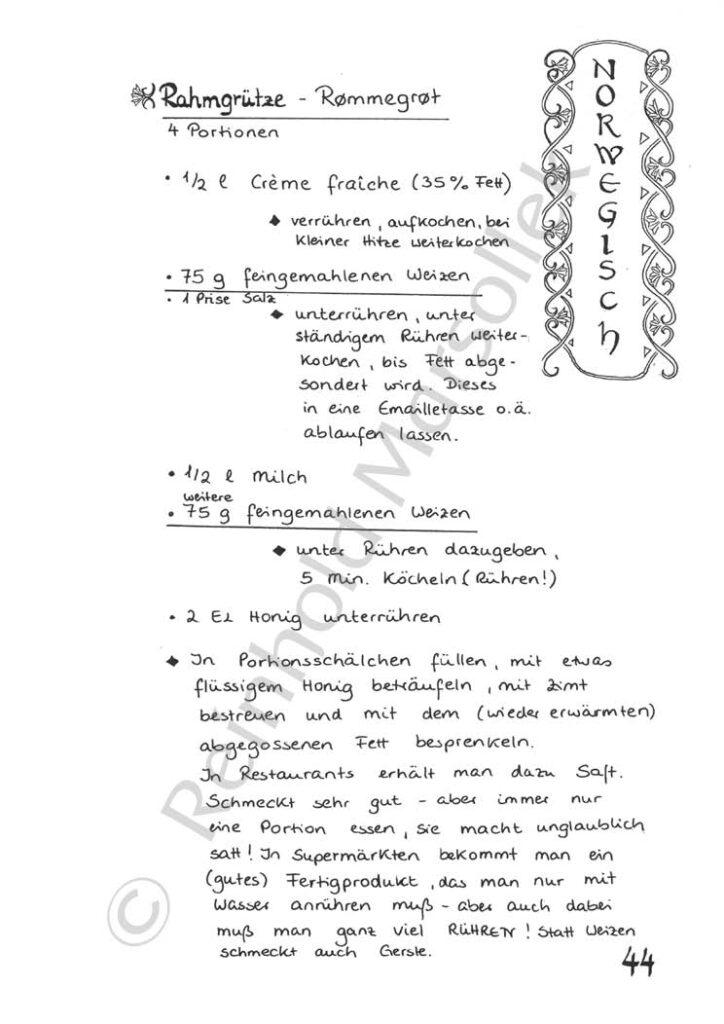 Rahmgrütze - Rømmegrøt
4 Portionen
• 1/2 l Crème fraîche (35% Fett)
◆ verrühren, aufkochen, bei
kleiner Hitze weiterkochen
• 75 g feingemahlenen Weizen
• 1 Prise Salz
◆ unterrühren, unter
ständigem Rühren weiter-
kochen, bis Fett abge-
sondert wird. Dieses
in eine Emailletasse o.ä.
ablaufen lassen.
• 1/2 l Milch
weitere
• 75 g feingemahlenen Weizen
◆ unter Rühren dazugeben,
5 Min. Köcheln (Rühren!)
• 2 EL Honig unterrühren
◆ In Portionsschälchen füllen, mit etwas
flüssigem Honig beträufeln, mit Zimt
bestreuen und mit dem (wieder erwärmten)
abgegossenen Fett besprenkeln.
In Restaurants erhält man dazu Saft.
Schmeckt sehr gut - aber immer nur
eine Portion essen, sie macht unglaublich
satt! In Supermärkten bekommt man ein
(gutes) Fertigprodukt, das man nur mit
Wasser anrühren muß - aber auch dabei
muß man ganz viel RÜHREN! Statt Weizen
schmeckt auch Gerste.
44
NORWEGISCH
© Reinhold Marsollek